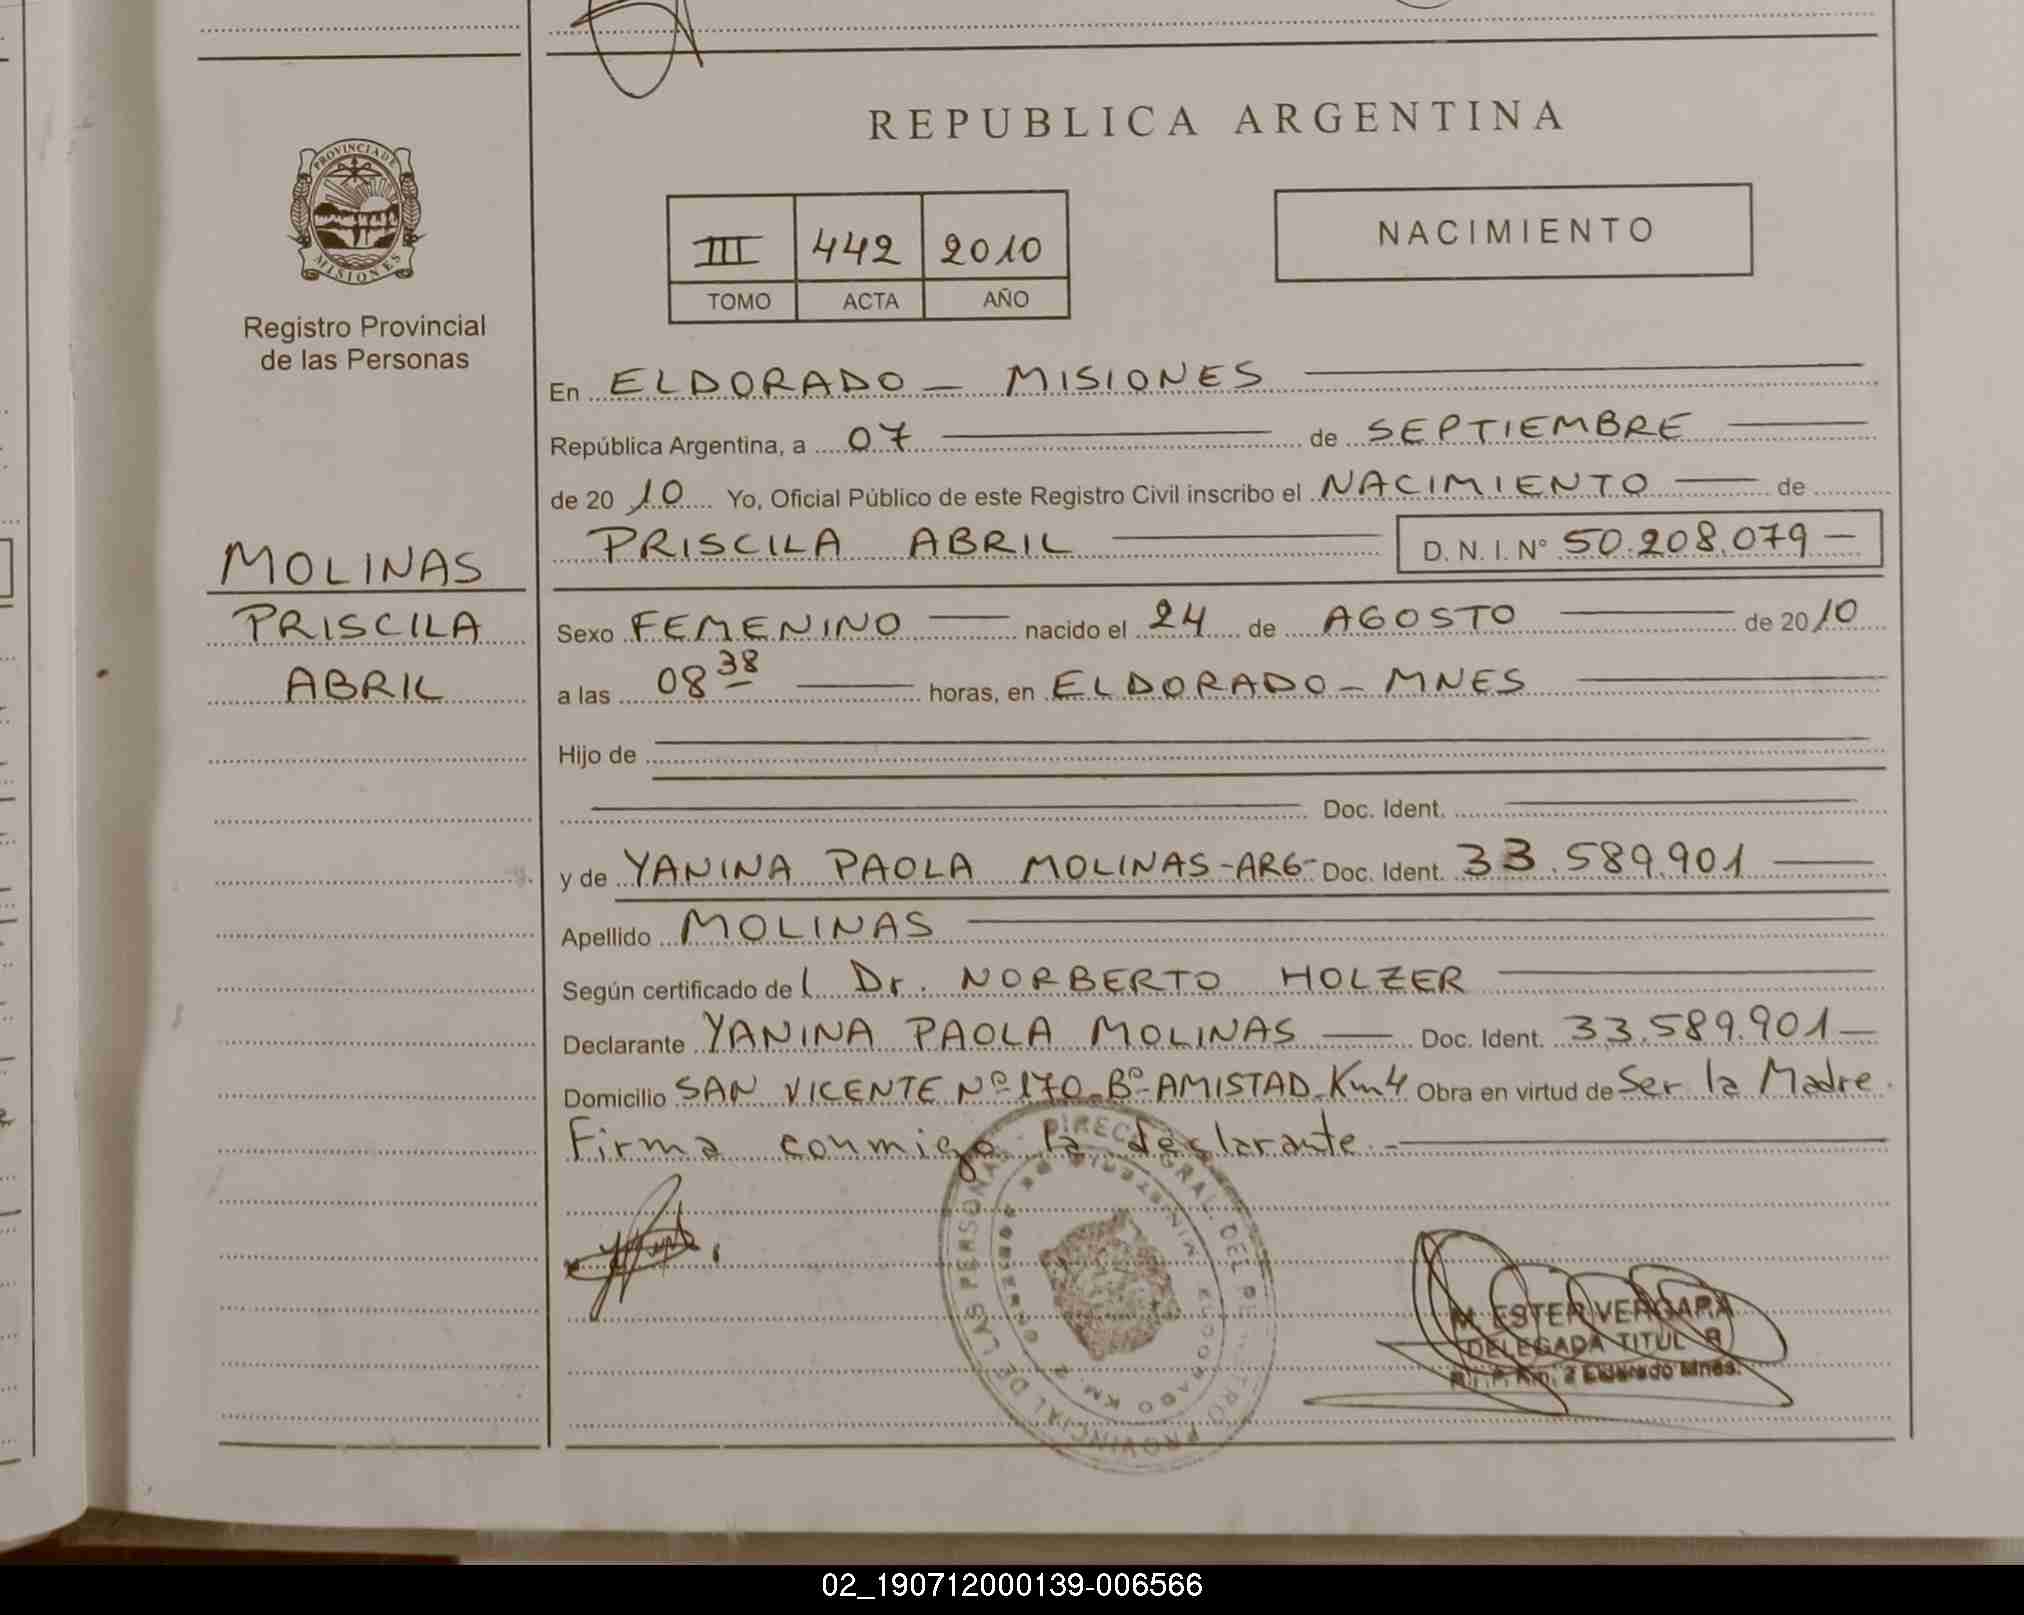 REPUBLICA ARGENTINA
PROVINCIA DE
MISIONES
Registro Provincial
de las Personas
III 442 2010
TOMO ACTA AÑO
NACIMIENTO
En ELDORADO - MISIONES
República Argentina, a 07 de SEPTIEMBRE
de 20 10 Yo, Oficial Público de este Registro Civil inscribo el NACIMIENTO de
PRISCILA ABRIL D. N. I. N° 50.208.079 -
MOLINAS
PRISCILA
ABRIL
Sexo FEMENINO nacido el 24 de AGOSTO de 20 10
a las 08 38 horas, en ELDORADO - MNES
Hijo de
Doc. Ident.
y de YANINA PAOLA MOLINAS - ARG - Doc. Ident. 33.589.901
Apellido MOLINAS
Según certificado del Dr. NORBERTO HOLZER
Declarante YANINA PAOLA MOLINAS Doc. Ident. 33.589.901
Domicilio SAN VICENTE Nº 170 - Bº AMISTAD - Km 4 Obra en virtud de Ser la Madre.
Firma conmigo la declarante.-
M. ESTER VERGARA
DELEGADA TITULAR
Km. 2 Eldorado Mnes.
02_190712000139-006566